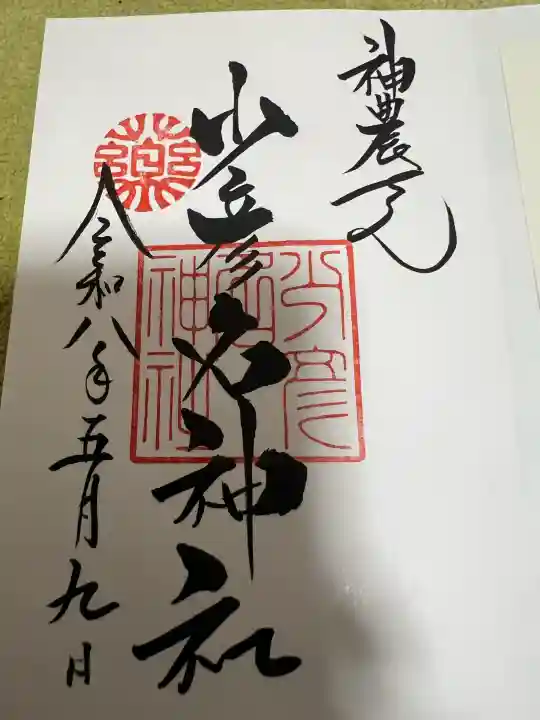 神農さん
少彦名神社
令和八年五月九日
薬
少彦
名
神社